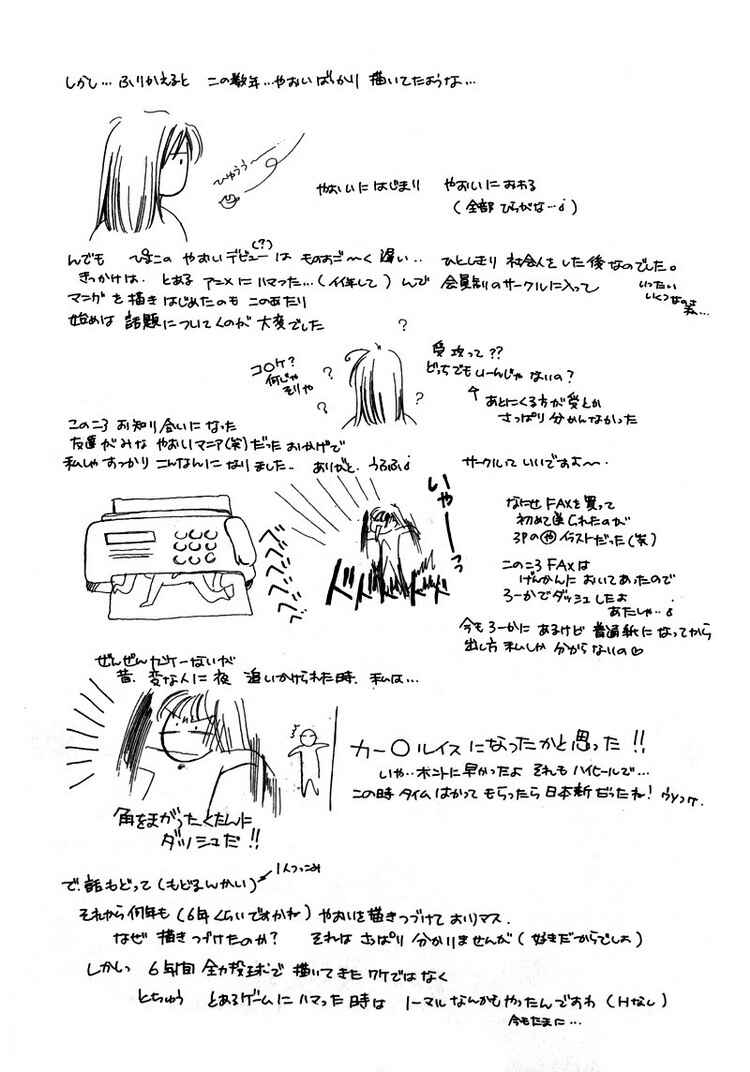 しかし… ふりかえると この数年…やおいばっかり 描いてたような…
ひゅうう〜
やおいにはじまり やおいにおわる
(全部 ひらがな…♩)
んでも ぴよこの やおいデビュー(?)は ものすご〜く 遅い‥ ひとしきり 社会人をした後なのでした。
きっかけは、とある アニメに ハマった…(イイ年して) んで 会員制のサークルに入って
いったい
いくつなのよ
私…
マンガ を 描き はじめたのも このあたり
始めは 話題に ついてくのが 大変でした
コ○ケ?
何じゃ
そりゃ
?
?
?
?
受攻って??
どっちでもいーんじゃないの?
あとにくる方が受とか
さっぱり 分かんなかった
このころ お知り合いになった
友達がみな やおいマニア(笑)だった おかげで
私しゃ すっかり こんなんに なりました- ありがと、うふふ♩
サークルて いいですよ〜、
いやーっ
なにせ FAXを買って
初めて送られたのが
3Pの(や)イラストだった(笑)
このころ FAXは
げんかんに おいてあったので
ろーかでダッシュしたよ
あたしゃ…♩
ズズズズズ
ドドドドドド
今も ろーかに あるけど 普通紙に なってから
出し方 私しゃ 分からないの♡
ぜんぜんカンケーないが
昔、変な人に 夜 追いかけられた時、私は…
カー○ルイスになったかと思った!!
いや‥ホントに早かったよ それも ハイヒールで…
この時 タイム はかって もらったら 日本新だったね! ウソつけ
角をまがったとたんに
ダッシュだ!!
で、話もどって(もどるんかい)
1人つっこみ
それから何年も(6年くらいですかね) やおいを描きつづけて おりマス.
なぜ 描きつづけたのか? それは さっぱり 分かりませんが(好きだからでしょ)
しかしっ 6年間 全力投球で 描いてきた ワケではなく
とちゅう とあるゲームに ハマった 時は ノーマル なんかも やったんですわ(Hなし)
今もたまに…